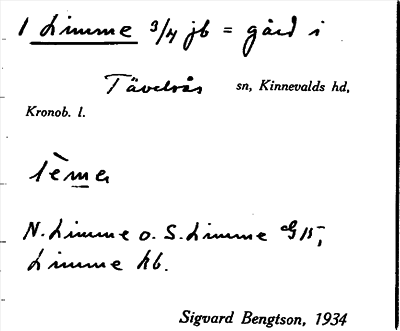 1 Limme 3/4 jb = gård i
Tävelsås sn, Kinnevalds hd,
Kronob. l.
N. Limme o. S. Limme
Limme hb.
Sigvard Bengtson, 1934